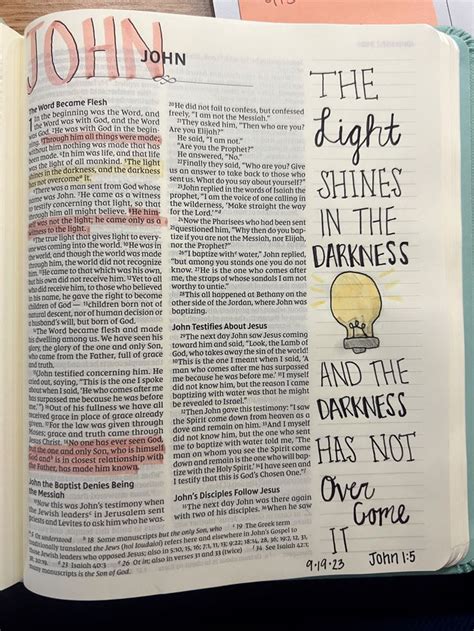 JOHN
JOHN
The Word Became Flesh
1 In the beginning was the Word, and
the Word was with God, and the Word
was God. 2 He was with God in the begin-
ning. 3 Through him all things were made;
without him nothing was made that has
been made. 4 In him was life, and that life
was the light of all mankind. 5 The light
shines in the darkness, and the darkness
has not overcome it.
6 There was a man sent from God whose
name was John. 7 He came as a witness
to testify concerning that light, so that
through him all might believe. 8 He him-
self was not the light; he came only as a
witness to the light.
9 The true light that gives light to every-
one was coming into the world. 10 He was in
the world, and though the world was made
through him, the world did not recognize
him. 11 He came to that which was his own,
but his own did not receive him. 12 Yet to all
who did receive him, to those who believed
in his name, he gave the right to become
children of God — 13 children born not of
natural descent, nor of human decision or
a husband's will, but born of God.
14 The Word became flesh and made
his dwelling among us. We have seen his
glory, the glory of the one and only Son,
who came from the Father, full of grace
and truth.
15 John testified concerning him. He
cried out, saying, "This is the one I spoke
about when I said, 'He who comes after me
has surpassed me because he was before
me.'" 16 Out of his fullness we have all
received grace in place of grace already
given. 17 For the law was given through
Moses; grace and truth came through
Jesus Christ. 18 No one has ever seen God,
but the one and only Son, who is himself
God and is in closest relationship with
the Father, has made him known.
John the Baptist Denies Being
the Messiah
19 Now this was John's testimony when
the Jewish leaders in Jerusalem sent
priests and Levites to ask him who he was.
20 He did not fail to confess, but confessed
freely, "I am not the Messiah."
21 They asked him, "Then who are you?
Are you Elijah?"
He said, "I am not."
"Are you the Prophet?"
He answered, "No."
22 Finally they said, "Who are you? Give
us an answer to take back to those who
sent us. What do you say about yourself?"
23 John replied in the words of Isaiah the
prophet, "I am the voice of one calling in
the wilderness, 'Make straight the way
for the Lord.'"
24 Now the Pharisees who had been sent
25 questioned him, "Why then do you bap-
tize if you are not the Messiah, nor Elijah,
nor the Prophet?"
26 "I baptize with water," John replied,
"but among you stands one you do not
know. 27 He is the one who comes after
me, the straps of whose sandals I am not
worthy to untie."
28 This all happened at Bethany on the
other side of the Jordan, where John was
baptizing.
John Testifies About Jesus
29 The next day John saw Jesus coming
toward him and said, "Look, the Lamb of
God, who takes away the sin of the world!
30 This is the one I meant when I said, 'A
man who comes after me has surpassed
me because he was before me.' 31 I myself
did not know him, but the reason I came
baptizing with water was that he might
be revealed to Israel."
32 Then John gave this testimony: "I saw
the Spirit come down from heaven as a
dove and remain on him. 33 And I myself
did not know him, but the one who sent
me to baptize with water told me, 'The
man on whom you see the Spirit come
down and remain is the one who will bap-
tize with the Holy Spirit.' 34 I have seen
and I testify that this is God's Chosen One."
John's Disciples Follow Jesus
35 The next day John was there again
with two of his disciples.
THE
Light
SHINES
IN THE
DARKNESS
AND THE
DARKNESS
HAS NOT
Over
Come
IT
9-19-23 John 1:5